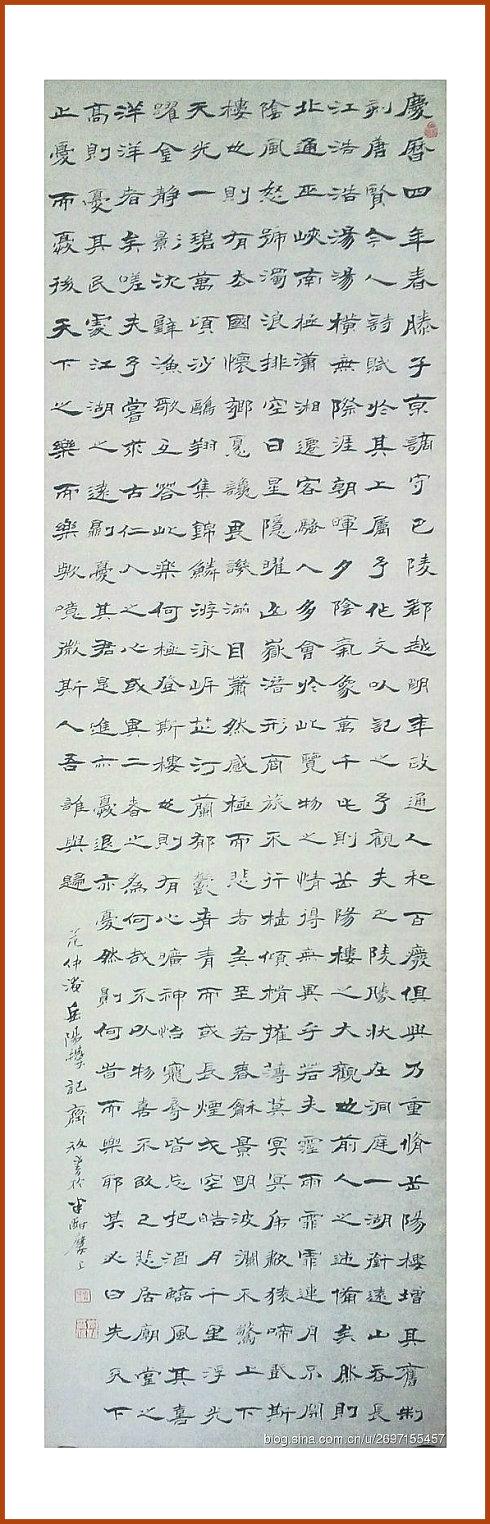 慶曆四年春滕子京謫守巴陵郡越明年政通人和百廢俱興乃重脩岳陽樓增其舊制
刻唐賢今人詩賦於其上屬予作文以記之予觀夫巴陵勝狀在洞庭一湖銜遠山吞長
江浩浩湯湯橫無際涯朝暉夕陰氣象萬千此則岳陽樓之大觀也前人之述備矣然則
北通巫峽南極瀟湘遷客騷人多會於此覽物之情得無異乎若夫霪雨霏霏連月不開
陰風怒號濁浪排空日星隱曜山嶽潛形商旅不行檣傾楫摧薄莫冥冥虎嘯猿啼登斯
樓也則有去國懷鄉憂讒畏譏滿目蕭然感極而悲者矣至若春龢景明波瀾不驚上下
天光一碧萬頃沙鷗翔集錦鱗游泳岸芷汀蘭郁郁青青而或長煙弌空皓月千里浮光
躍金静影沈璧漁歌互答此樂何極登斯樓也則有心曠神怡寵辱皆忘把酒臨風其喜
洋洋者矣嗟夫予嘗求古仁人之心或異二者之為何哉不以物喜不以己悲居廟堂之
高則憂其民處江湖之遠則憂其君是進亦憂退亦憂然則何時而樂耶其必曰先天下
之憂而憂後天下之樂而樂歟噫微斯人吾誰與歸
范仲淹岳陽樓記
blog.sina.com.cn/u/2697155457